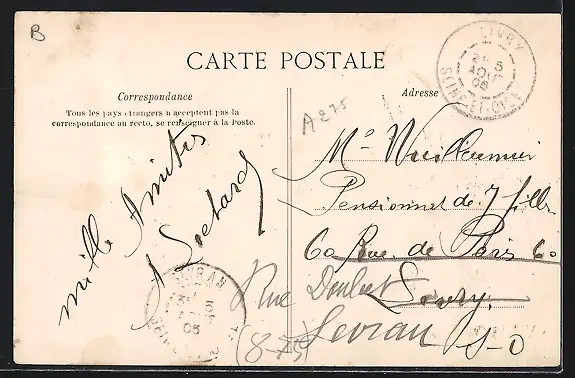 B
CARTE POSTALE
Correspondance
Tous les pays étrangers n'acceptent pas la
correspondance au recto, se renseigner à la Poste.
mille Amitiés
Adresse
LIVRY
5
AOUT
05
SEINE-ET-OISE
A275
Pensionnat de J filles
60 Rue de Paris 60
Livry
S-O
Rue
Sevran
SEVRAN
5
AOUT
05